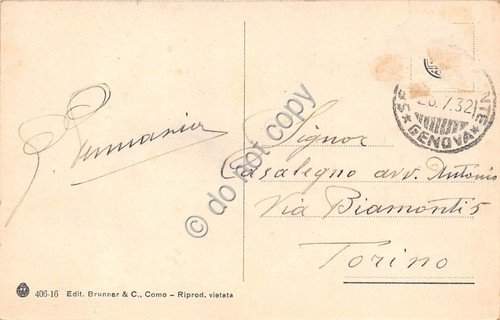 26.7.32
GENOVA
Signor
Casalegno avv. Antonio
Via Biamonti 5
Torino
© do not copy
406-16 Edit. Brunner & C., Como – Riprod. vietata